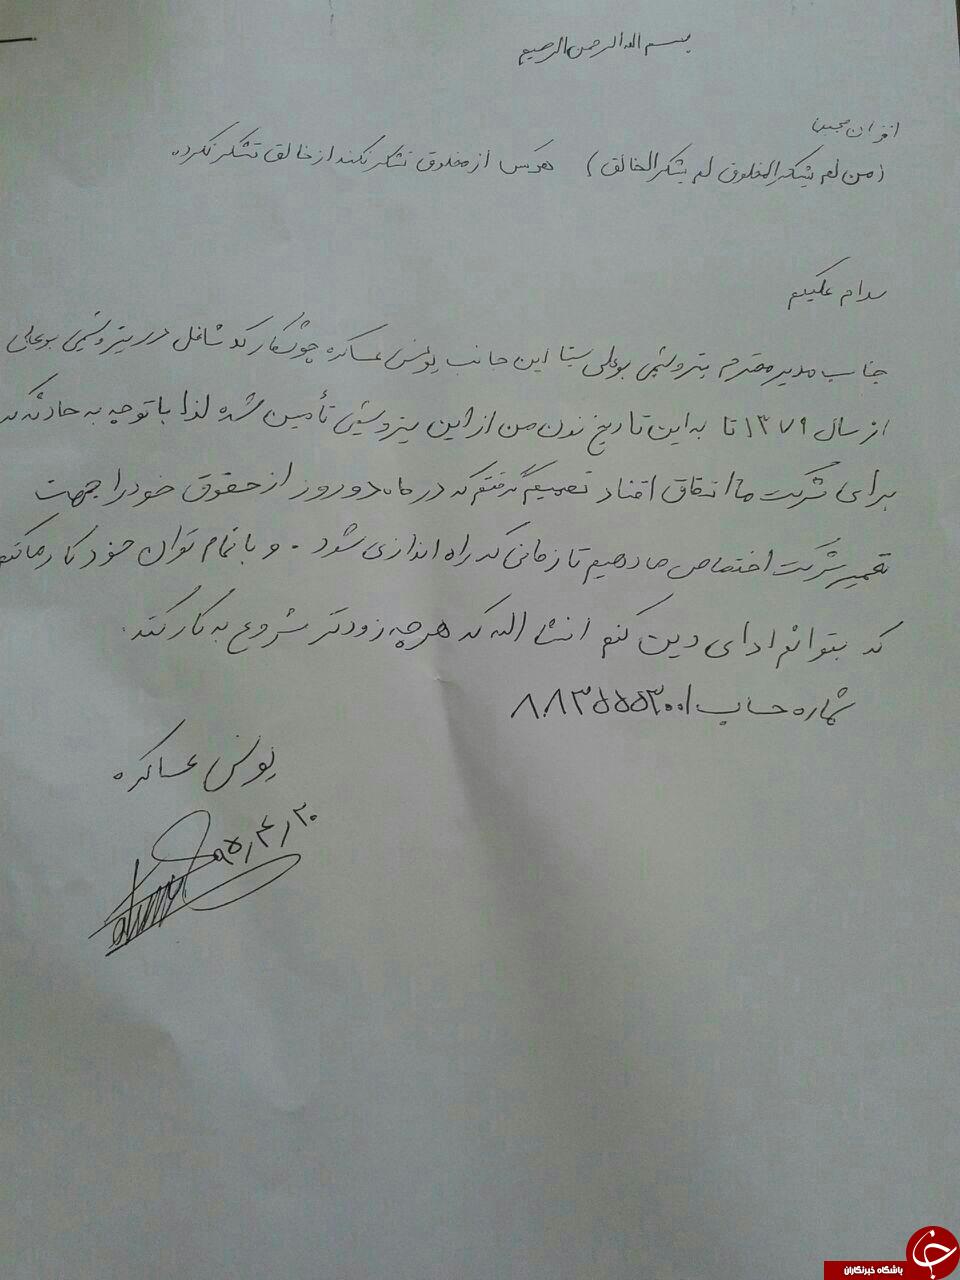 بسم الله الرحمن الرحیم
از قرآن مجید
(من لم یشکر المخلوق لم یشکر الخالق) هرکس از مخلوق تشکر نکند از خالق تشکر نکرده.
سلام علیکم
جناب مدیر محترم پتروشیمی بوعلی سینا این جانب یونس عساکره جوشکار که شاغل در پتروشیمی بوعلی
از سال ۱۳۷۹ تا به این تاریخ نون من از این پتروشیمی تأمین شده لذا با توجه به حادثه که
برای شرکت ما اتفاق افتاد تصمیم گرفتم که در ماه دو روز از حقوق خود را جهت
تعمیر شرکت اختصاص می دهیم تا زمانی که راه اندازی شود. و با تمام توان خود کار می کنم
که بتوانم ادای دین کنم انشا الله که هرچه زودتر شروع به کار کند.
شماره حساب
یونس عساکره
۹۵/۴/۲۰
باشگاه خبرنگاران